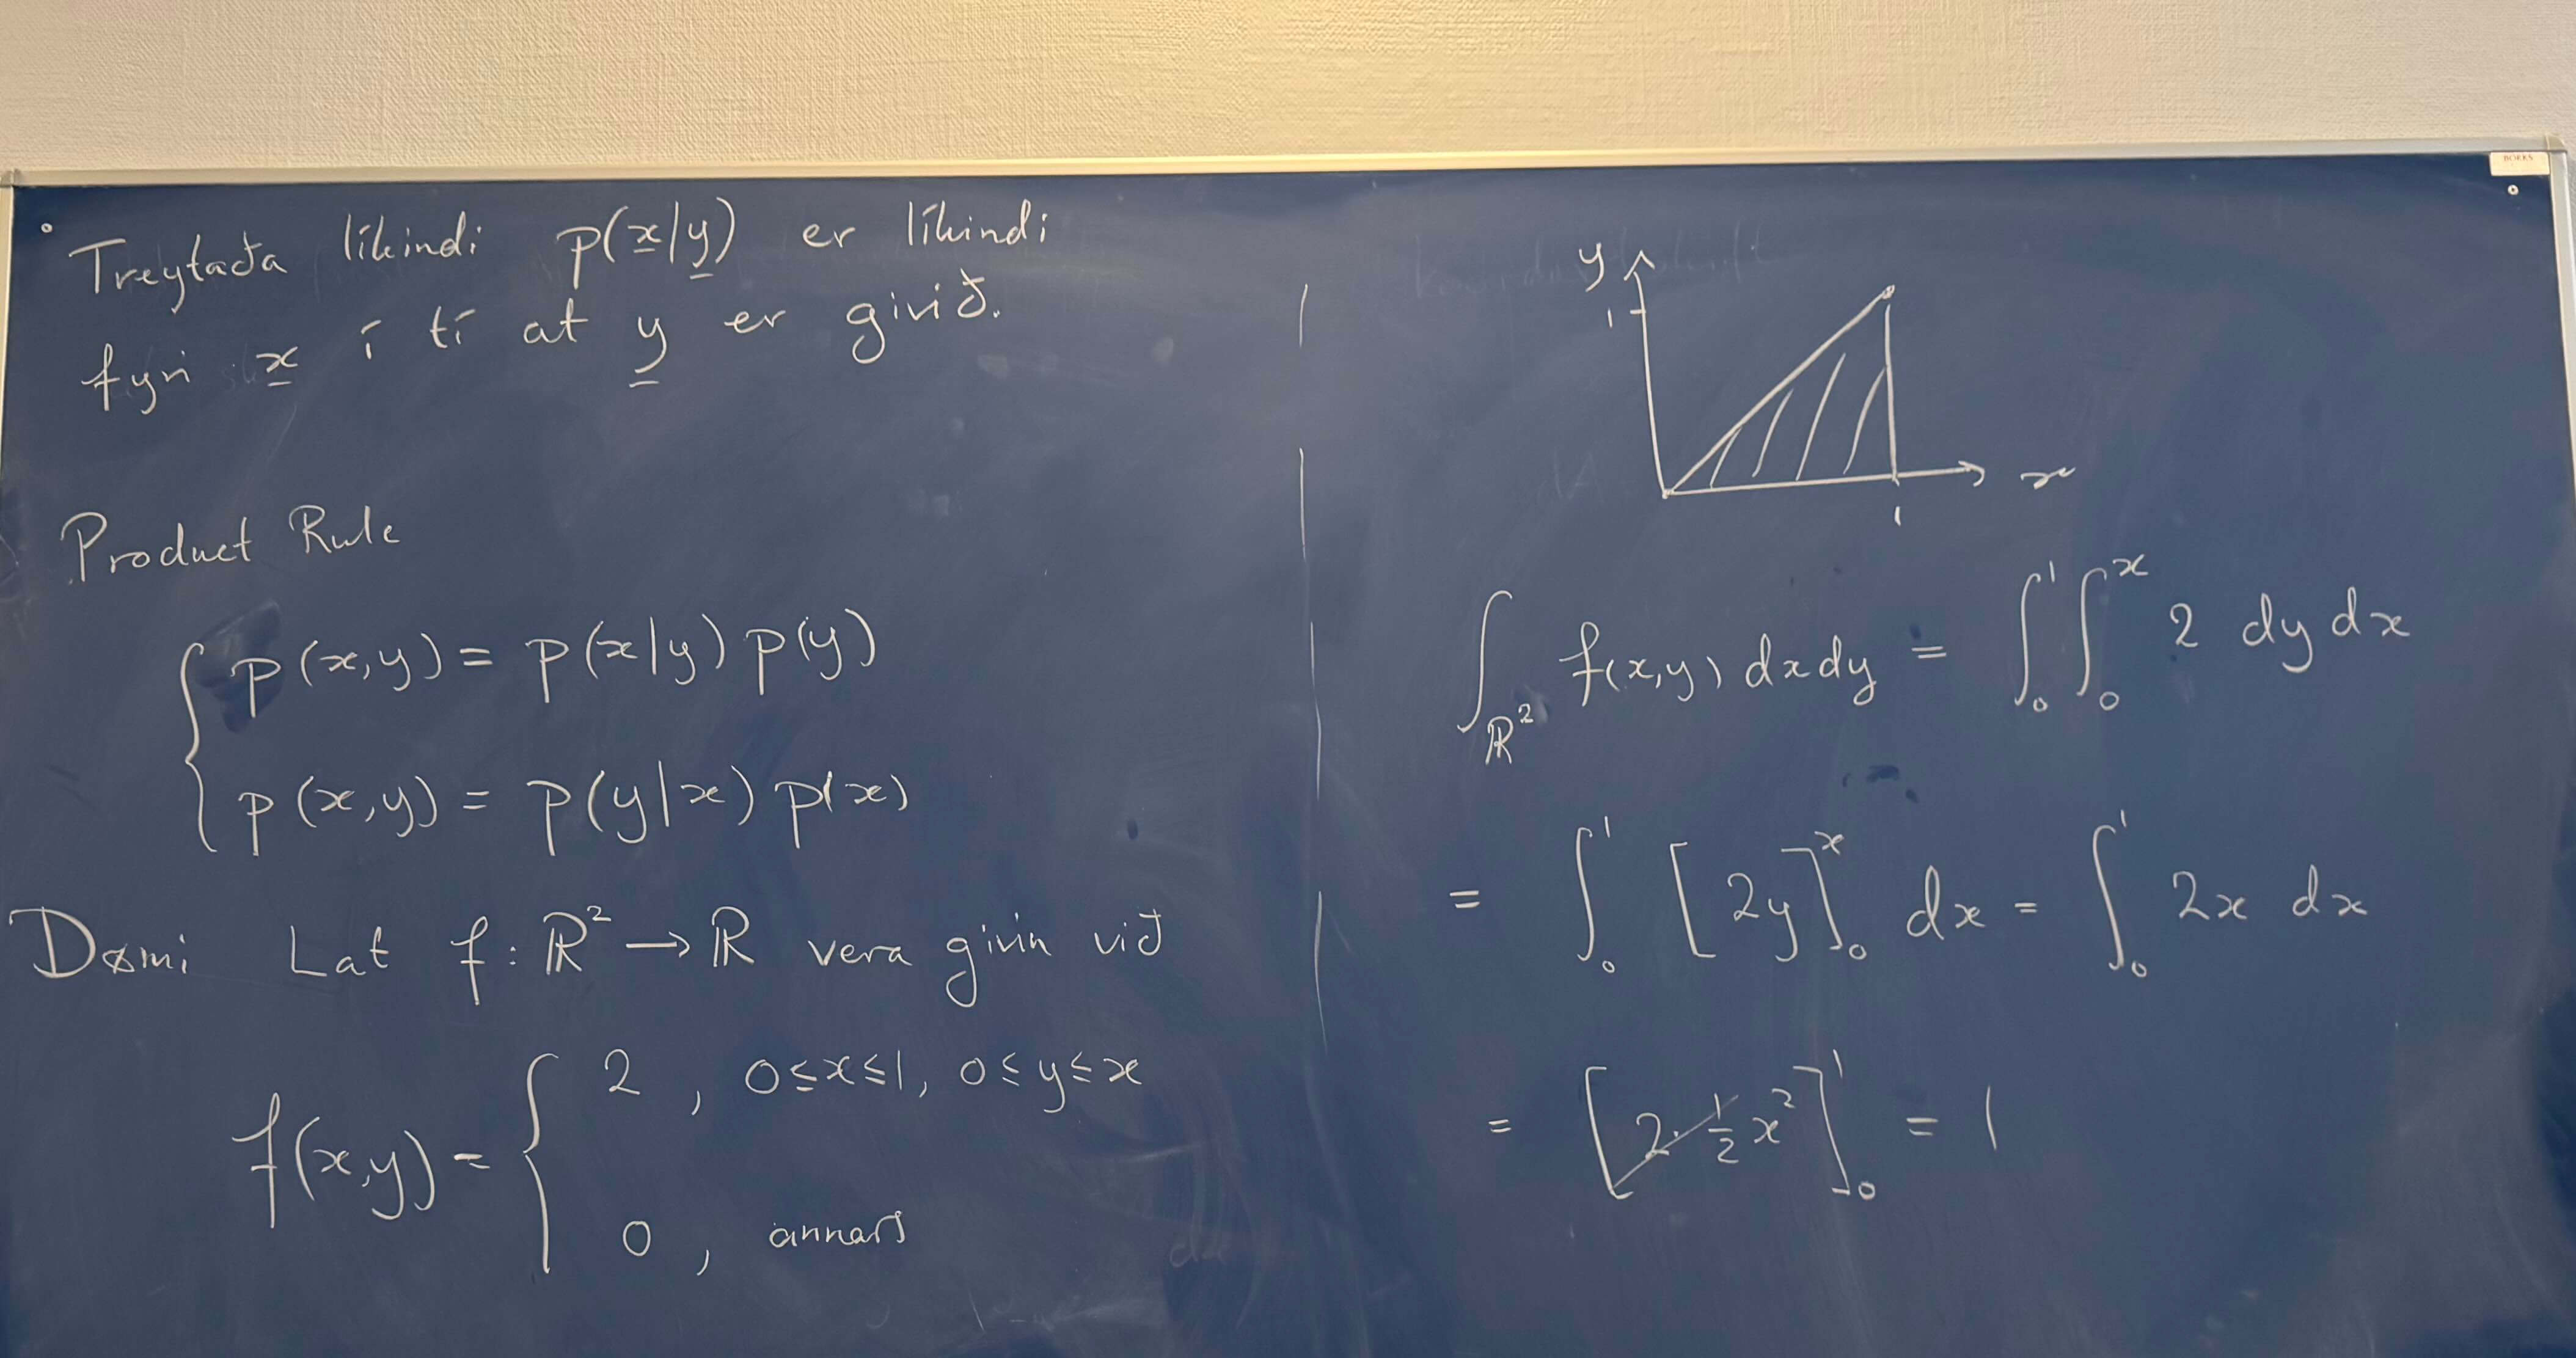 Treytaða líkindi p(x|y) er líkindi
fyri x í tí at y er givið.
Product Rule
p(x,y) = p(x|y) p(y)
p(x,y) = p(y|x) p(x)
Dømi Lat f: ℝ² → ℝ vera givin við
f(x,y) = { 2 , 0≤x≤1, 0≤y≤x
0 , annars
y
1
x
1
∫_ℝ² f(x,y) dxdy = ∫₀¹ ∫₀ˣ 2 dy dx
= ∫₀¹ [2y]₀ˣ dx = ∫₀¹ 2x dx
= [2·½x²]₀¹ = 1